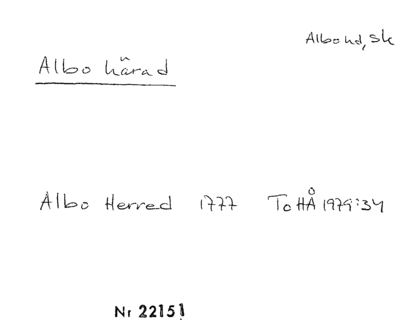 Albo hd, Sk
Albo härad
Albo Herred 1777 ToHÅ 1979:34
Nr 22151